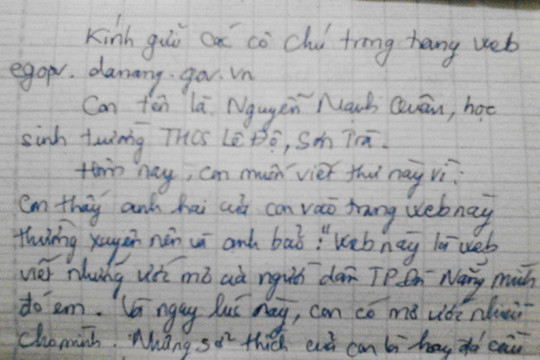 Kính gửi các cô chú trong trang web
egov.danang.gov.vn
Con tên là Nguyễn Mạnh Quân, học
sinh trường THCS Lê Độ, Sơn Trà.
Hôm nay, con muốn viết thư này vì:
Con thấy anh hai của con vào trang web này
thường xuyên nên và anh bảo: "Web này là web
viết những ước mơ của người dân TP.Đà Nẵng mình
đó em. Và ngay lúc này, con có mơ ước nhiều
cho mình. Những sở thích của con là hay đá cầu